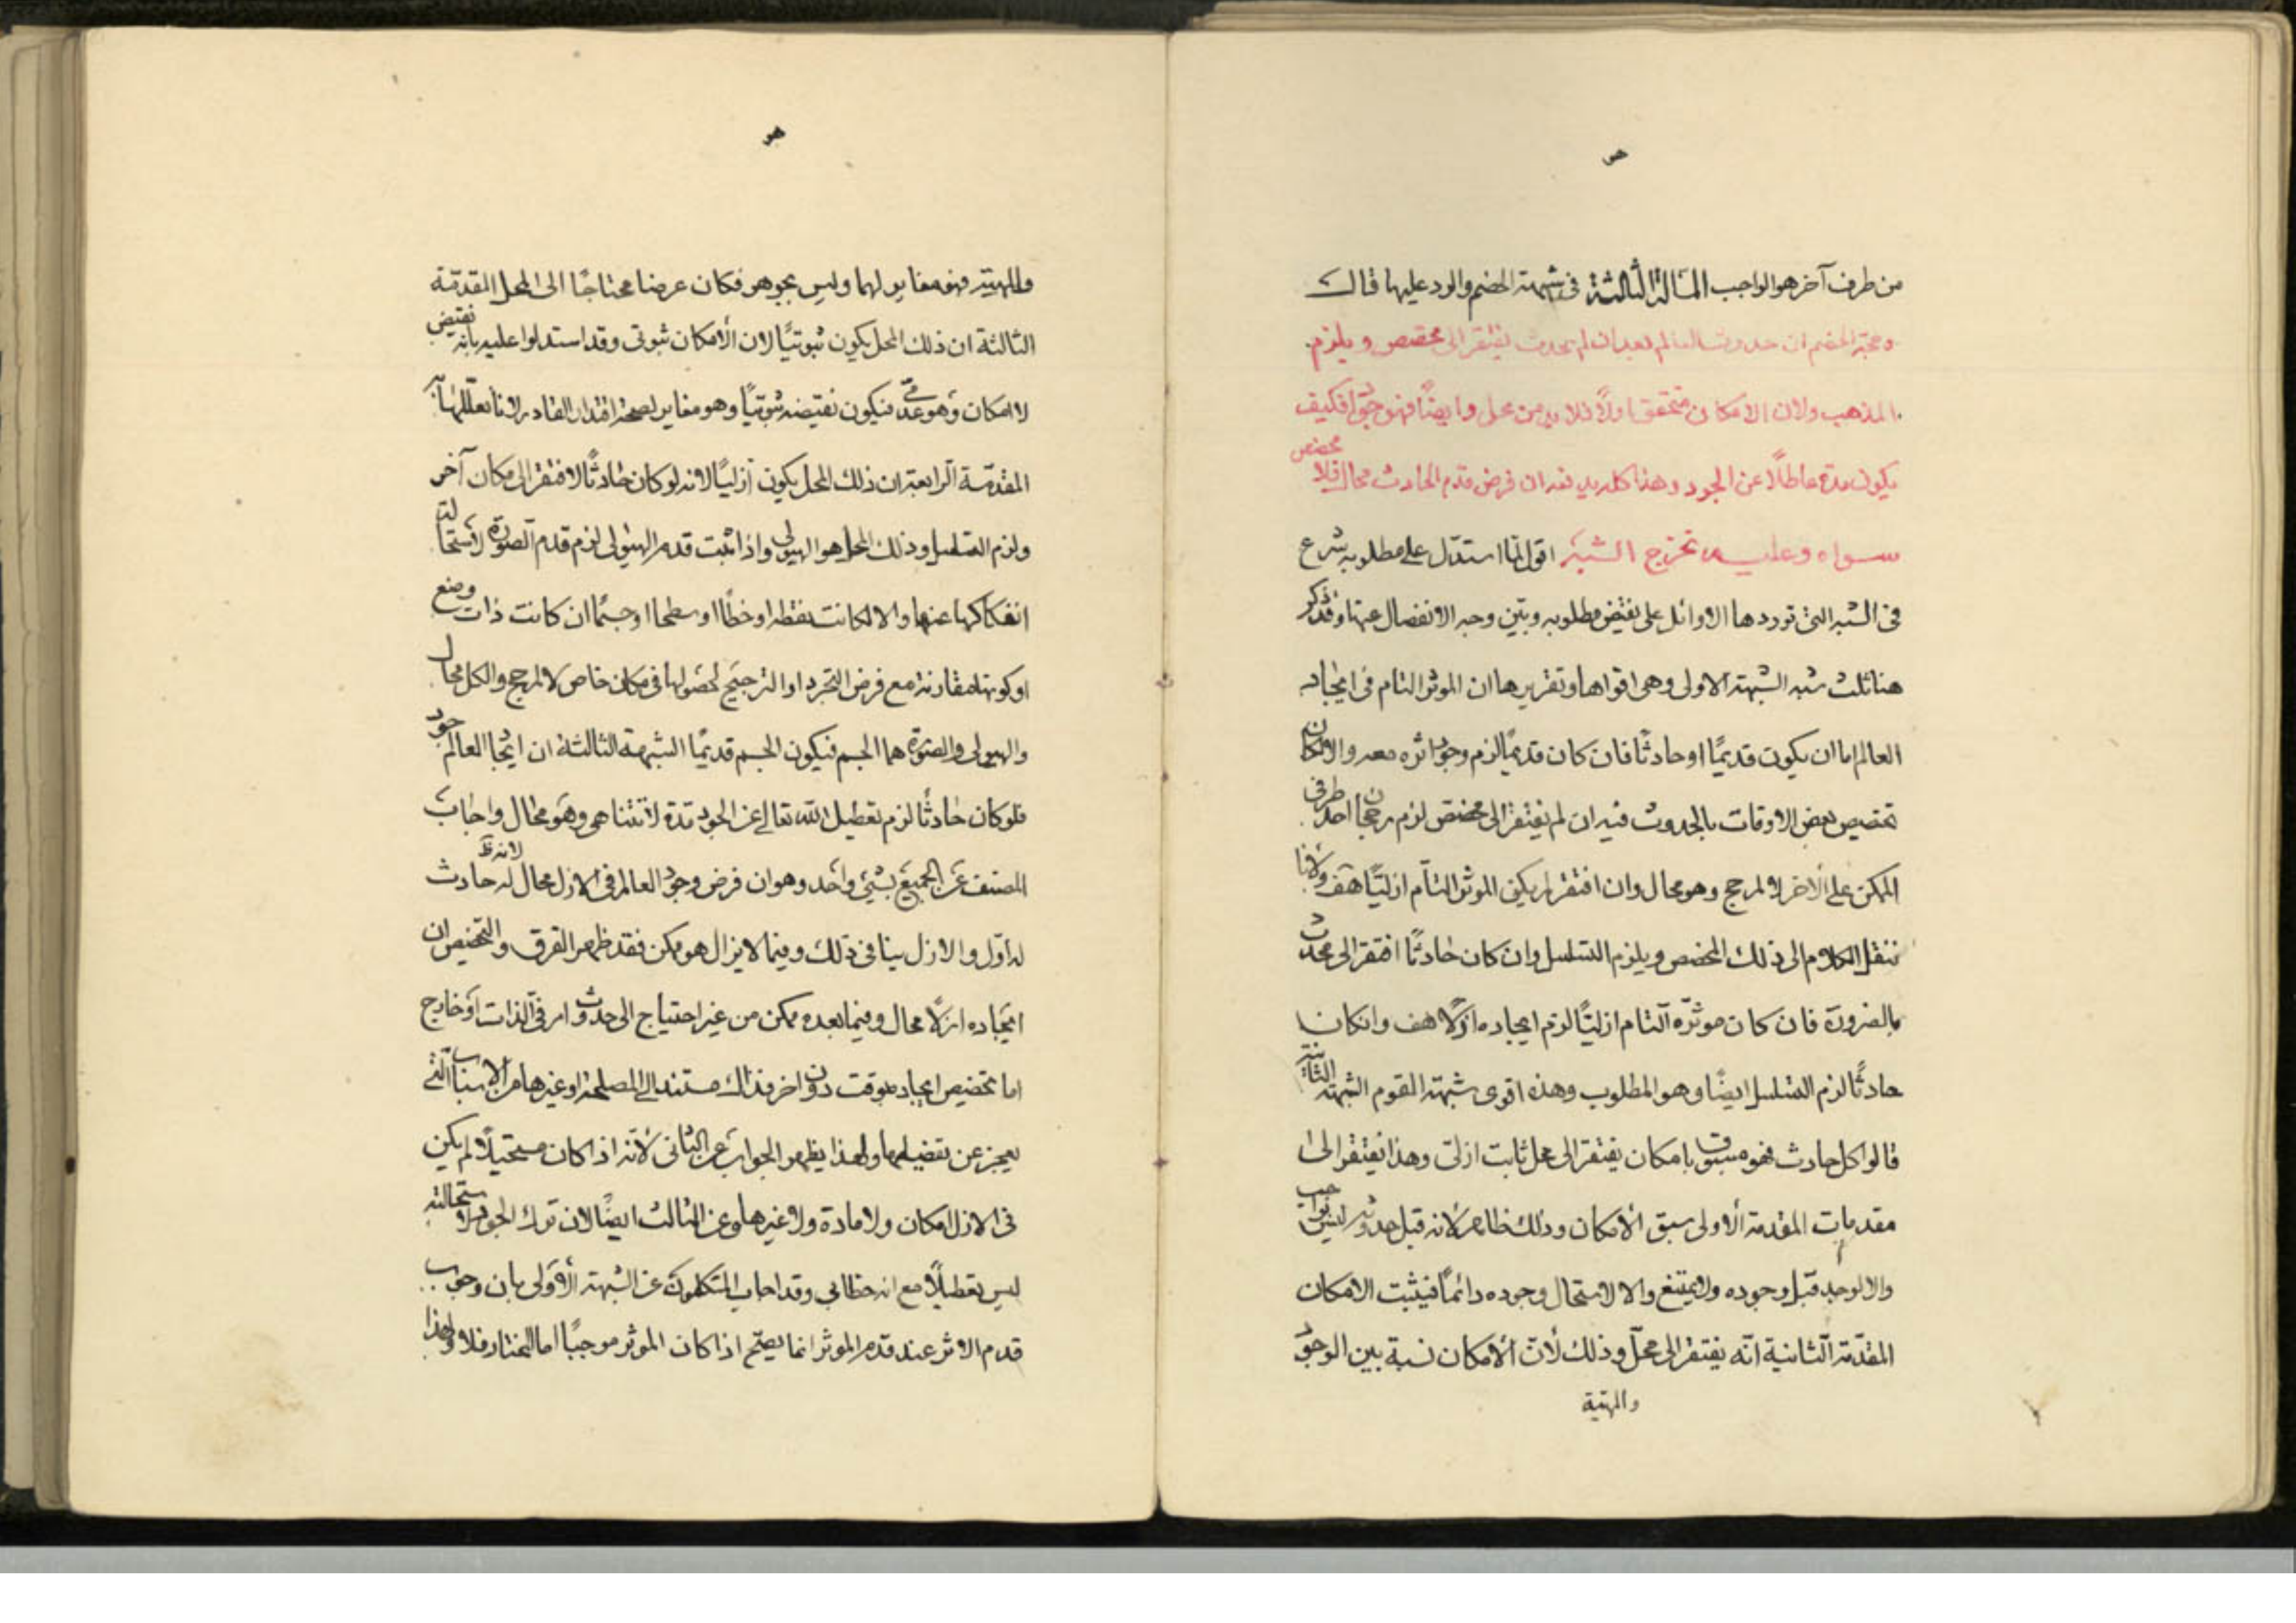 من طرف آخر هو الواجب المسالة الثالثة فى شبهة الخصم والرد عليها قال
وحجة الخصم ان حدوث العالم بعد ان لم يحدث يفتقر الى مخصص ويلزم
المذهب ولان الامكان متحقق اولا فلا بد من محل وايضا فهو جواد فكيف
يكون مدة عاطلا عن الجود وهذا كله يدفعه ان فرض قدم الحادث محال فلا مخصص
سواه وعليه تخرج الشبه اقول لما استدل على مطلوبه شرع
فى الشبه التى توردها الاوائل على نقيض مطلوبه وبين وجه الانفصال عنها وقد ذكر
هنا ثلث شبه الشبهة الاولى وهى اقواها وتقريرها ان الموثر التام فى ايجاد
العالم اما ان يكون قديمًا او حادثًا فان كان قديمًا لزم وجود اثره معه والا لكان
تخصيص بعض الاوقات بالحدوث فيه ان لم يفتقر الى مخصص لزم رجحان احد طرفى
الممكن على الاخر لا لمرجح وهو محال وان افتقر لم يكن الموثر التام ازليًا هف ولانا
ننقل الكلام الى ذلك المخصص ويلزم التسلسل وان كان حادثًا افتقر الى محدث
بالضرورة فان كان موثره التام ازليًا لزم ايجاده ازلًا هف وان كان
حادثًا لزم التسلسل ايضًا وهو المطلوب وهذه اقوى شبهة القوم الشبهة الثانية
قالوا كل حادث فهو مسبوق بامكان يفتقر الى محل ثابت ازلى وهذا يفتقر الى
مقدمات المقدمة الاولى سبق الامكان وذلك ظاهر لانه قبل حدوثه ليس بواجب
والا لوجد قبل وجوده ولا يمتنع والا لاستحال وجوده دائمًا فيثبت الامكان
المقدّمة الثانية انّه يفتقر الى محلّ وذلك لأن الأمكان نسبة بين الوجود
والمهية
والمهية فهو مغاير لهما وليس بجوهر فكان عرضا محتاجًا الى المحل المقدّمة
الثالثة ان ذلك المحل يكون ثبوتيًا لان الأمكان ثبوتى وقد استدلوا عليه بانه نقيض
لا امكان وهو عدمىّ فيكون نقيضه ثبوتيًا وهو مغاير لصحة اقتدار القادر لانا نعللها به
المقدّمة الرابعة ان ذلك المحل يكون ازليًا لانه لو كان حادثًا لافتقر الى مكان آخر
ولزم التسلسل وذلك المحل هو الهيولى واذا ثبت قدم الهيولى لزم قدم الصورة لاستحالة
انفكاكها عنها والا لكانت نقطة او خطًا او سطحا او جسمًا ان كانت ذات وضع
او كونها مقارنة مع فرض التجرد او الترجيح لحصولها فى مكان خاص لا لمرجح والكل محال
والهيولى والصورة هما الجسم فيكون الجسم قديمًا الشبهة الثالثة ان ايجاد العالم جود
فلو كان حادثًا لزم تعطيل الله تعالى عن الجود مدة لا تتناهى وهو محال واجاب
المصنف عن الجميع بشيئ واحد وهو ان فرض وجود العالم فى الازل محال لانه حادث
له اوّل والازل ينافى ذلك وفيما لا يزال هو ممكن فقد ظهر الفرق والتخصيص ان
ايجاده ازلًا محال وفيما بعده ممكن من غير احتياج الى حدوث امر فى الذات او خارج
اما تخصيص ايجاده بوقت دون اخر فذلك مستند الى المصلحة او غيرها من الاسباب التى
يعجز عن تفصيلها ولهذا يظهر الجواب عن الثانى لأنّه اذا كان مستحيلًا لم يكن
فى الازل امكان ولا مادة ولا غيرها وعن الثالث ايضًا لان ترك الجود لاستحالته
ليس تعطيلًا مع انه خطابى وقد اجاب المتكلمون عن الشبهة الأولى بان وجوب
قدم الاثر عند قدم الموثر انما يصحّ اذا كان الموثر موجبًا اما المختار فلا ولهذا